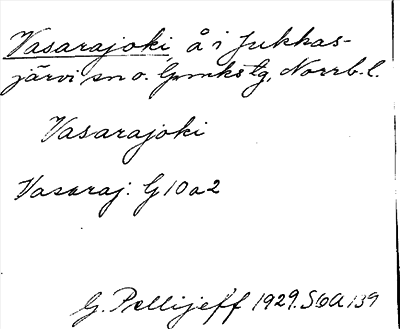 Vasarajoki, å i Jukkas-
järvi sn o. Gmks tg, Norrb. l.
Vasarajoki
Vasaraj: G 10 a 2
G. Pellijeff 1929. S6A 139